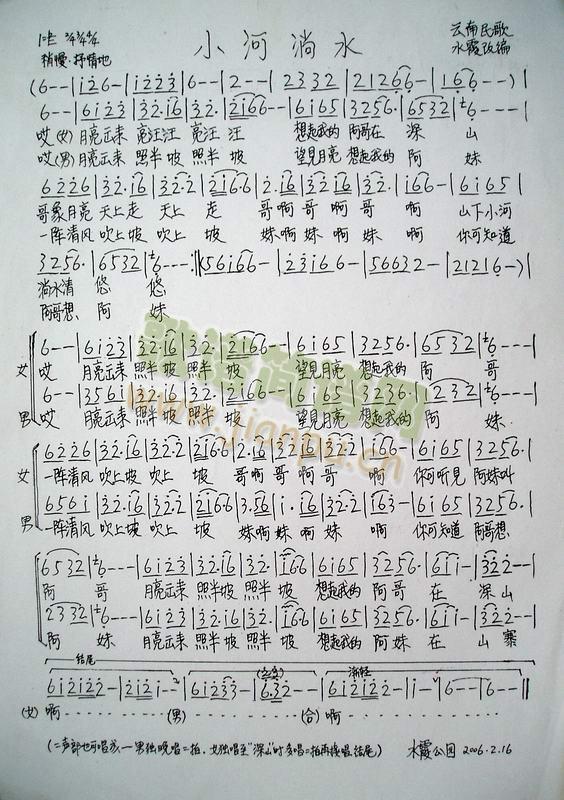 小河淌水
云南民歌
水霞改编
稍慢.抒情地
(6--|i26-|i223|6--|2--|2332|21266|166--)|
6--|6i23|32.i6|32.|2i66--|6i65|3256.|6532|6---|
哎(女)月亮出来 亮汪汪 亮汪汪 想起我的 阿哥在 深山
哎(男)月亮出来 照半坡 照半坡 望见月亮 想起我的 阿妹
6226|32.i6|32.2|2i66.|2.i6|32i6|32.|i66-|6i65|
哥象月亮 天上走 天上走 哥啊哥啊哥啊 山下小河
一阵清风 吹上坡 吹上坡 妹啊妹啊妹啊 你可知道
3256.|6532|6---:||56i66-|23i66-|56632-|21216-)|
淌水清 悠悠
阿哥想 阿妹
女
6--|6i23|32.i6|32.|2i66--|6i65|3256.|6532|6---|
哎 月亮出来 照半坡 照半坡 望见月亮 想起我的 阿哥
男
6--|356i|32.i6|32.|2i66--|6i65|3236.|232|6---|
哎 月亮出来 照半坡 照半坡 望见月亮 想起我的 阿妹
女
6226|32.i6|32.2|2i66.|2.i6|32i6|32.|i66-|6i65|3256.|
一阵清风 吹上坡 吹上坡 哥啊哥啊哥啊 你可听见 阿妹叫
男
656i|32.i6|32.2|2i66.|3.56|i.|32.|i63-|6i65|3256.|
一阵清风 吹上坡 吹上坡 妹啊妹啊妹啊 你可知道 阿哥想
6532|6---|6i23|32.i6|32.|i66|6i65|3256.|6ii-|322--|
阿哥 月亮出来 照半坡 照半坡 想起我的 阿哥在 深山
2332|6---|6i23|32.i6|32.|2i66|6i65|3256.|6ii-|322--|
阿妹 月亮出来 照半坡 照半坡 想起我的 阿妹在 山寨
结尾
渐轻
6i2i22-|2i2i--|6i233-|6.32--|6i2i22-|i--i-|6--|6--||
(女)啊 (男) (合)啊
水霞公园 2006.2.16
www.jianpu.cn